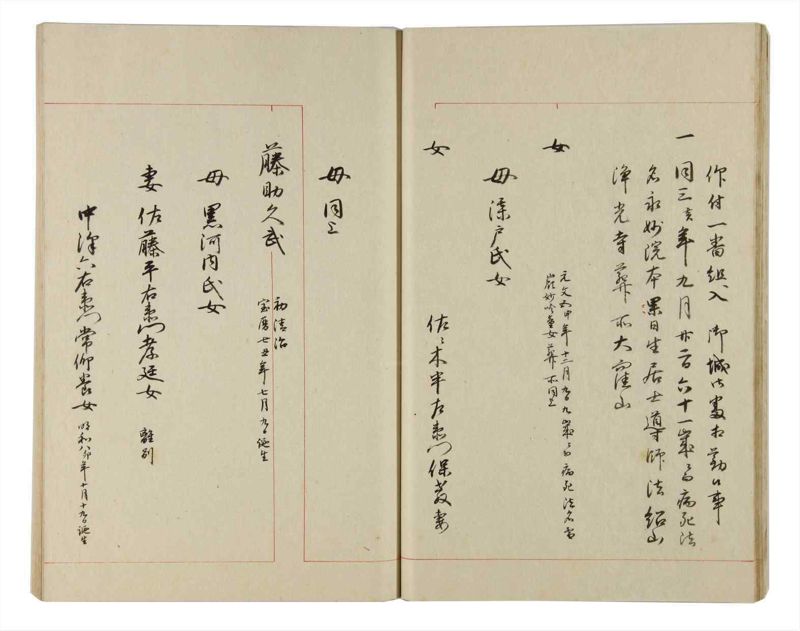 作付一番組入 御城御書方勤候事
一同三亥年九月廿二日六十一歳ニ而病死法
名永妙院本翠日生居士導師法紹山
浄光寺葬所大窪山
女
母深戸氏女
元文五申年十二月九日九歳ニ而病死法名
妙吟童女葬所同上
女
佐々木半右衛門保教妻
母同上
藤助久武
初清治
宝暦七丑年七月九日誕生
母黒河内氏女
妻佐藤平右衛門孝廷女 離別
中澤六右衛門常仰養女 明和八卯年十月十九日誕生